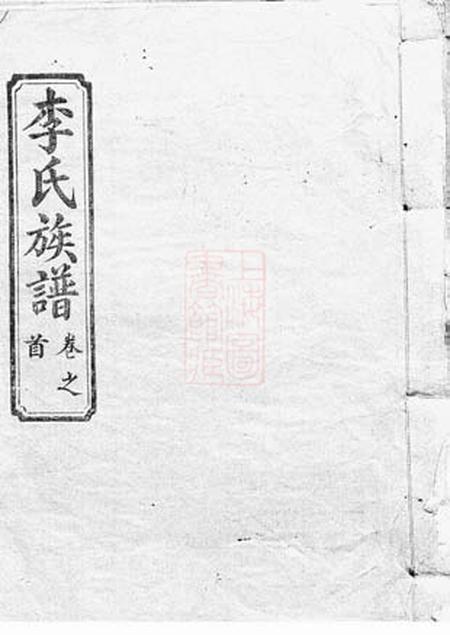 李氏族譜
卷之
首
上海圖
書館藏